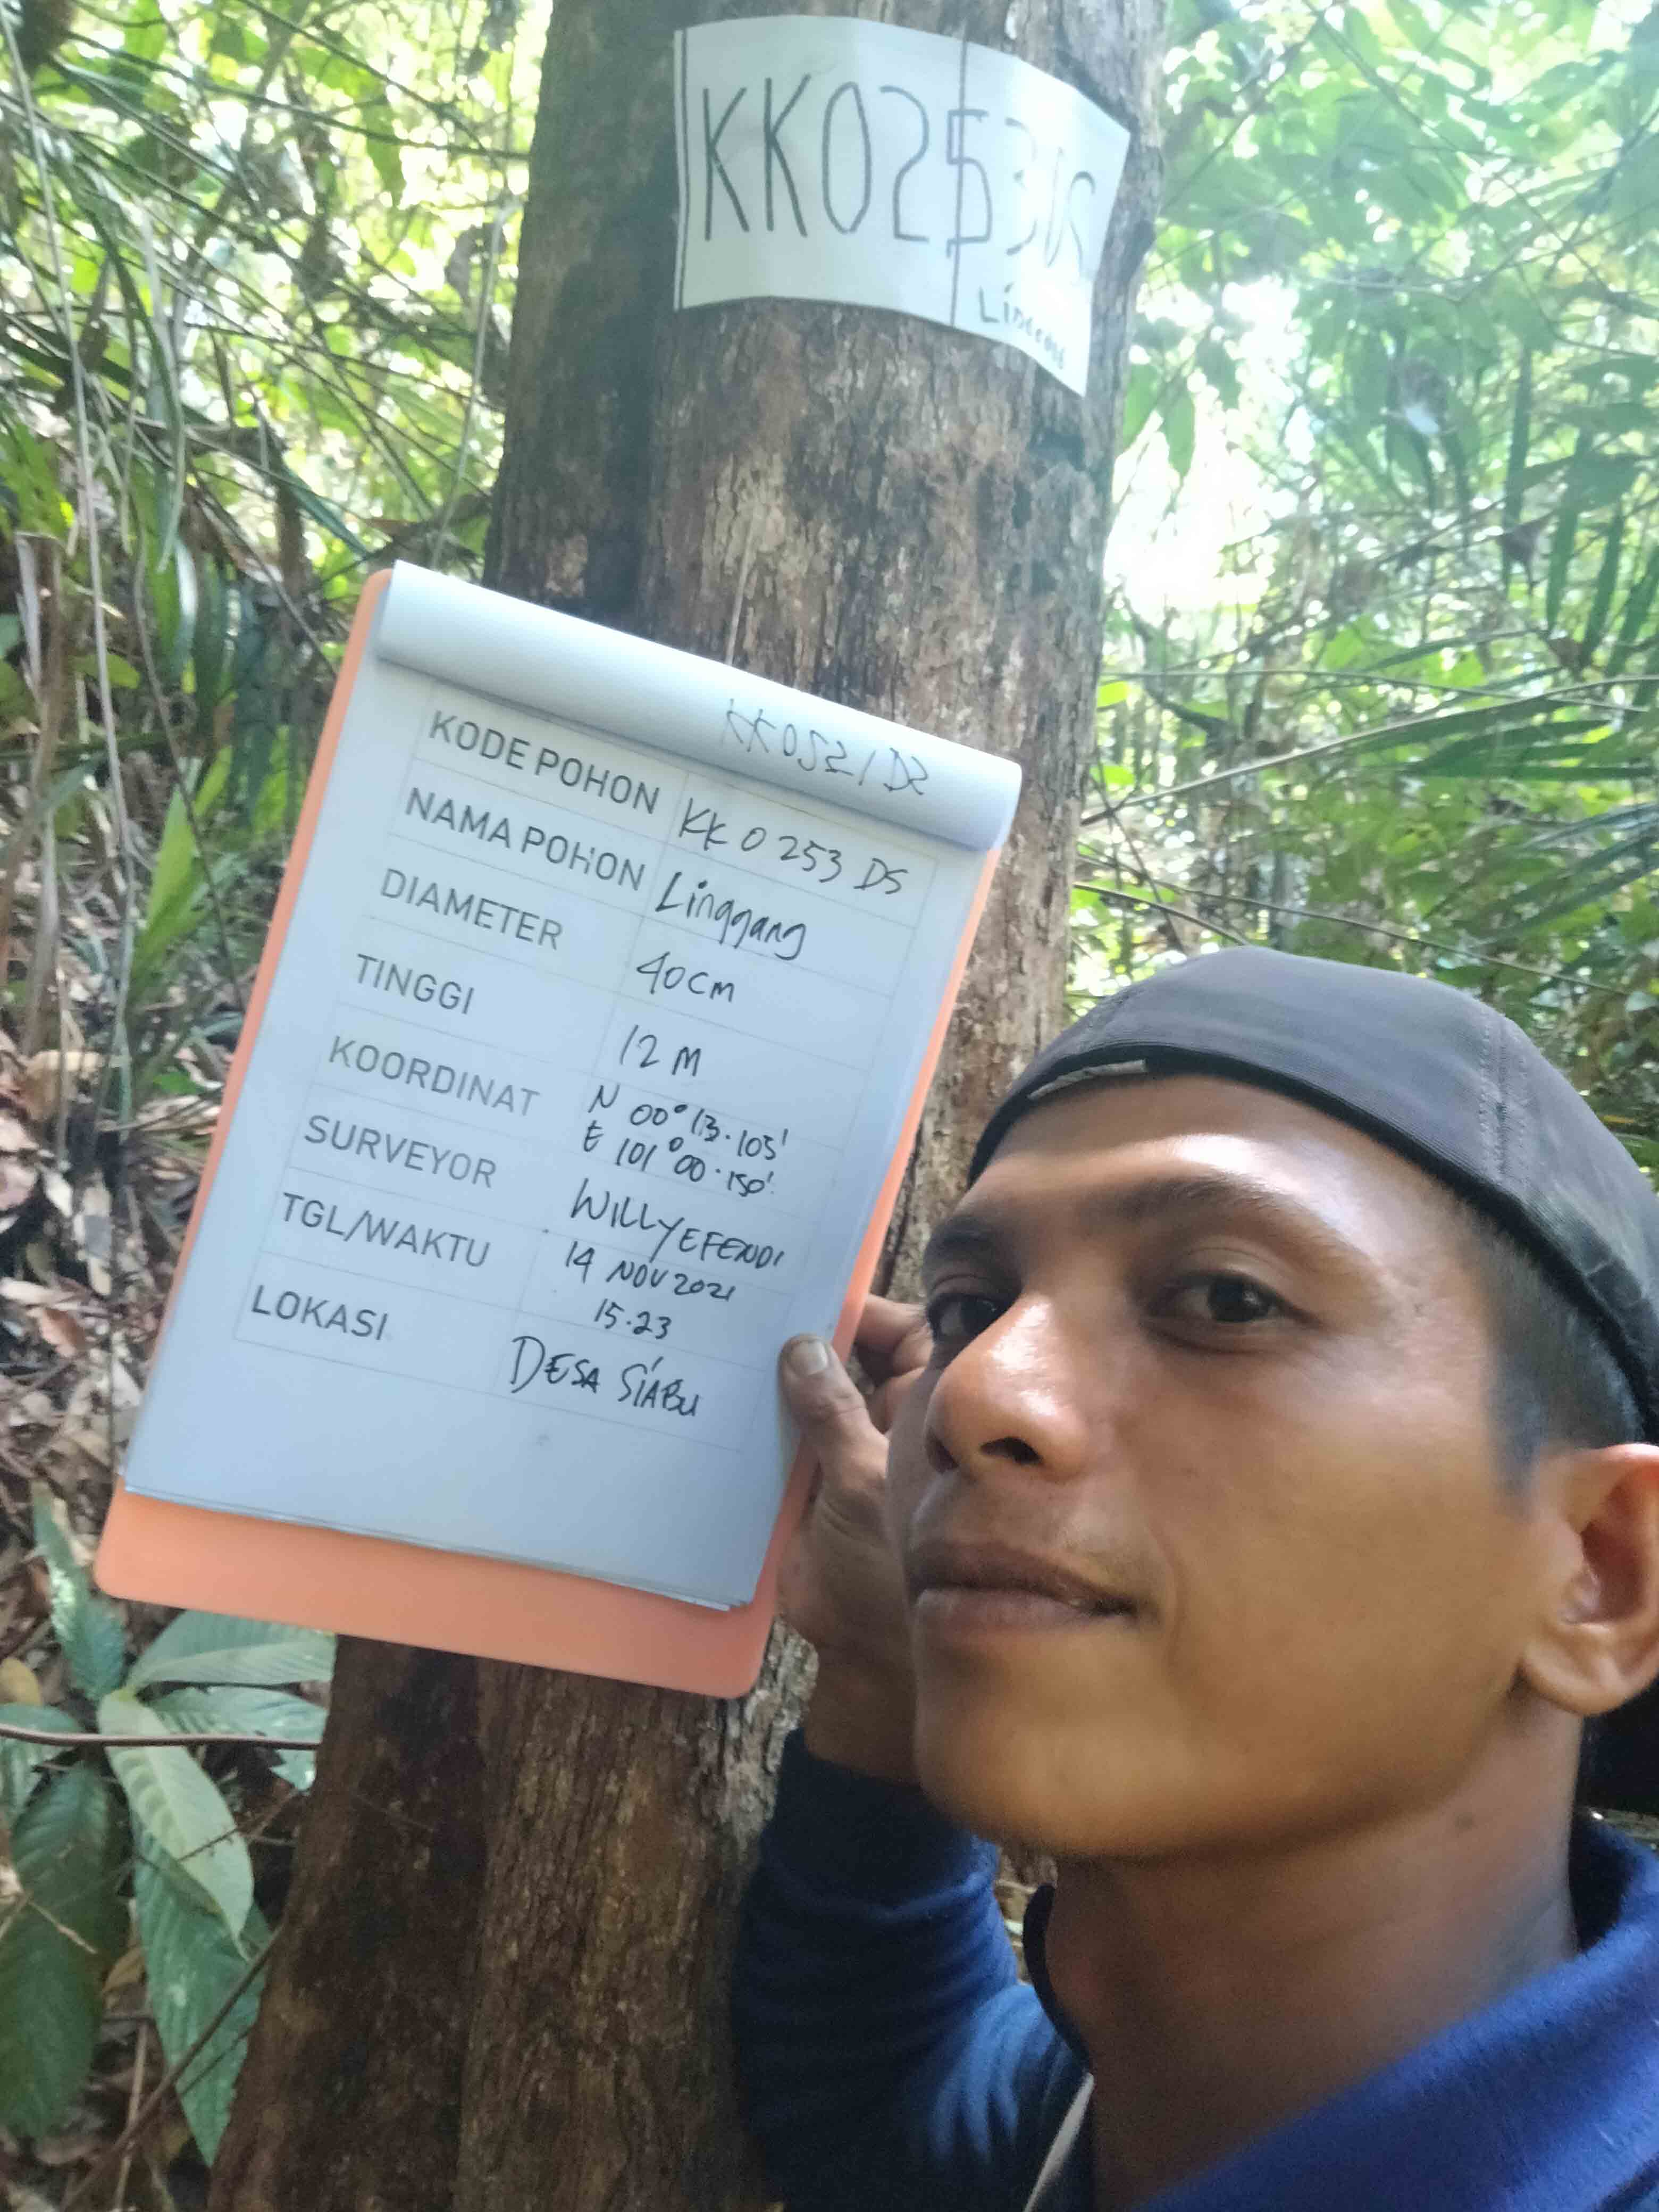 KK0253DS
KODE POHON KK 0 253 DS
NAMA POHON Linggang
DIAMETER 40 cm
TINGGI 12 M
KOORDINAT N 00° 13.105'
E 101° 00.150'
SURVEYOR WILLY EFENDI
TGL/WAKTU 14 NOV 2021
15.23
LOKASI DESA SIABU